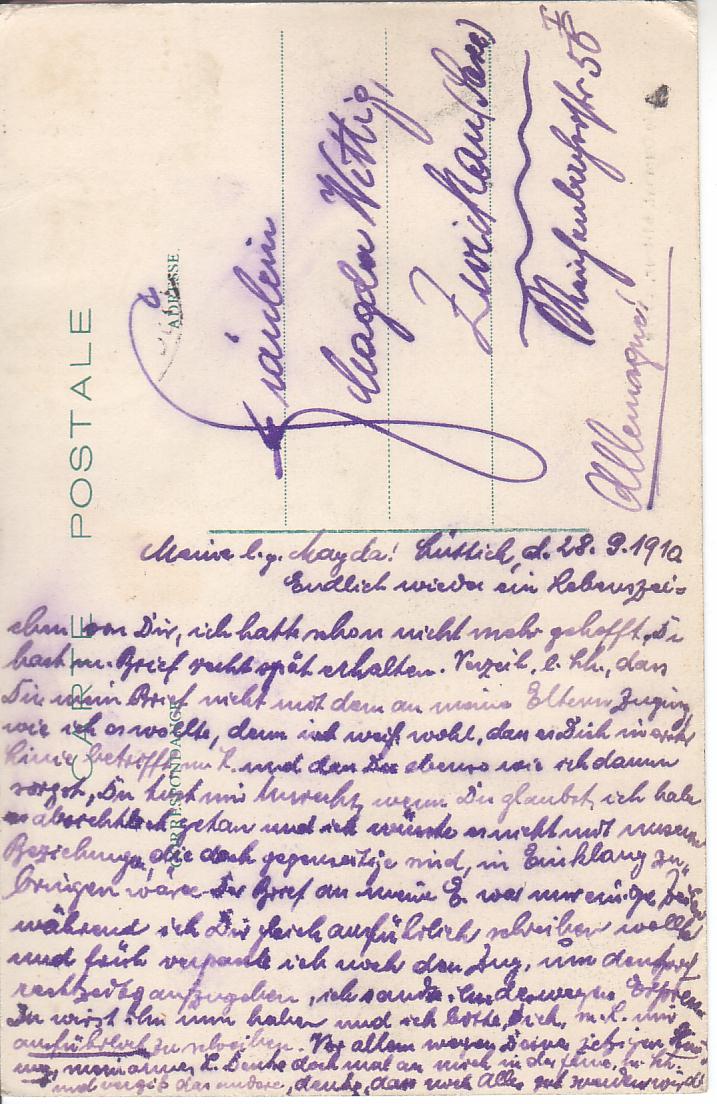 CARTE POSTALE
CORRESPONDANCE
ADRESSE.
Fräulein
Magda Wittig,
Zwickau, Sa.
56
Allemagne!
Meine l. g. Magda! Lüttich, d. 28. 9. 1910
Endlich wieder ein Lebenszei=
chen von Dir, ich hatte schon nicht mehr gehofft, Du
hast m. Brief recht spät erhalten. Verzeih, l. , dass
Dir mein Brief nicht mit dem an meine Eltern zuging,
wie ich es wollte, denn ich weiß wohl, dass es Dich in erster
Linie betrifft und dass Du ebenso wie ich darum
sorgst, Du tust mir Unrecht, wenn Du glaubst, ich habe
es absichtlich getan und ich wüsste es nicht mit unseren
Beziehungen, die doch gegenseitige sind, in Einklang zu
bringen wäre. Der Brief an meine E. war nur einige Zeilen
während ich Dir gleich ausführlich schreiben wollte
und früh verpasste ich noch den Zug, um den Brief
rechtzeitig aufzugeben, ich sandte ihn deswegen
Du wirst ihn nun haben und ich bitte Dich, m. L. mir
ausführlich zu schreiben. Vor allem wegen Deiner jetzigen
mein armes L. Denke doch mal an mich in der Ferne,
und vergiß das andere, denke, dass noch Alles gut werden wird